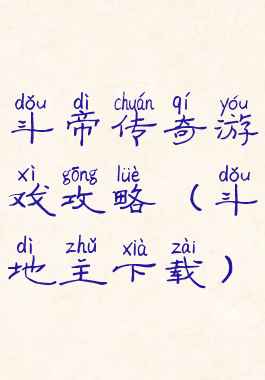 dǒu dì chuán qí yóu
斗帝传奇游
xì gōng lüè dǒu
戏攻略（斗
dì zhǔ xià zài
地主下载）